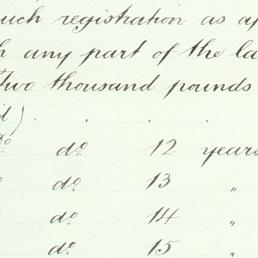 such registration as ap
h any part of the la
two thousand pounds
d) . . .
do do 12 years
do 13 "
do 14 "
do 15 "